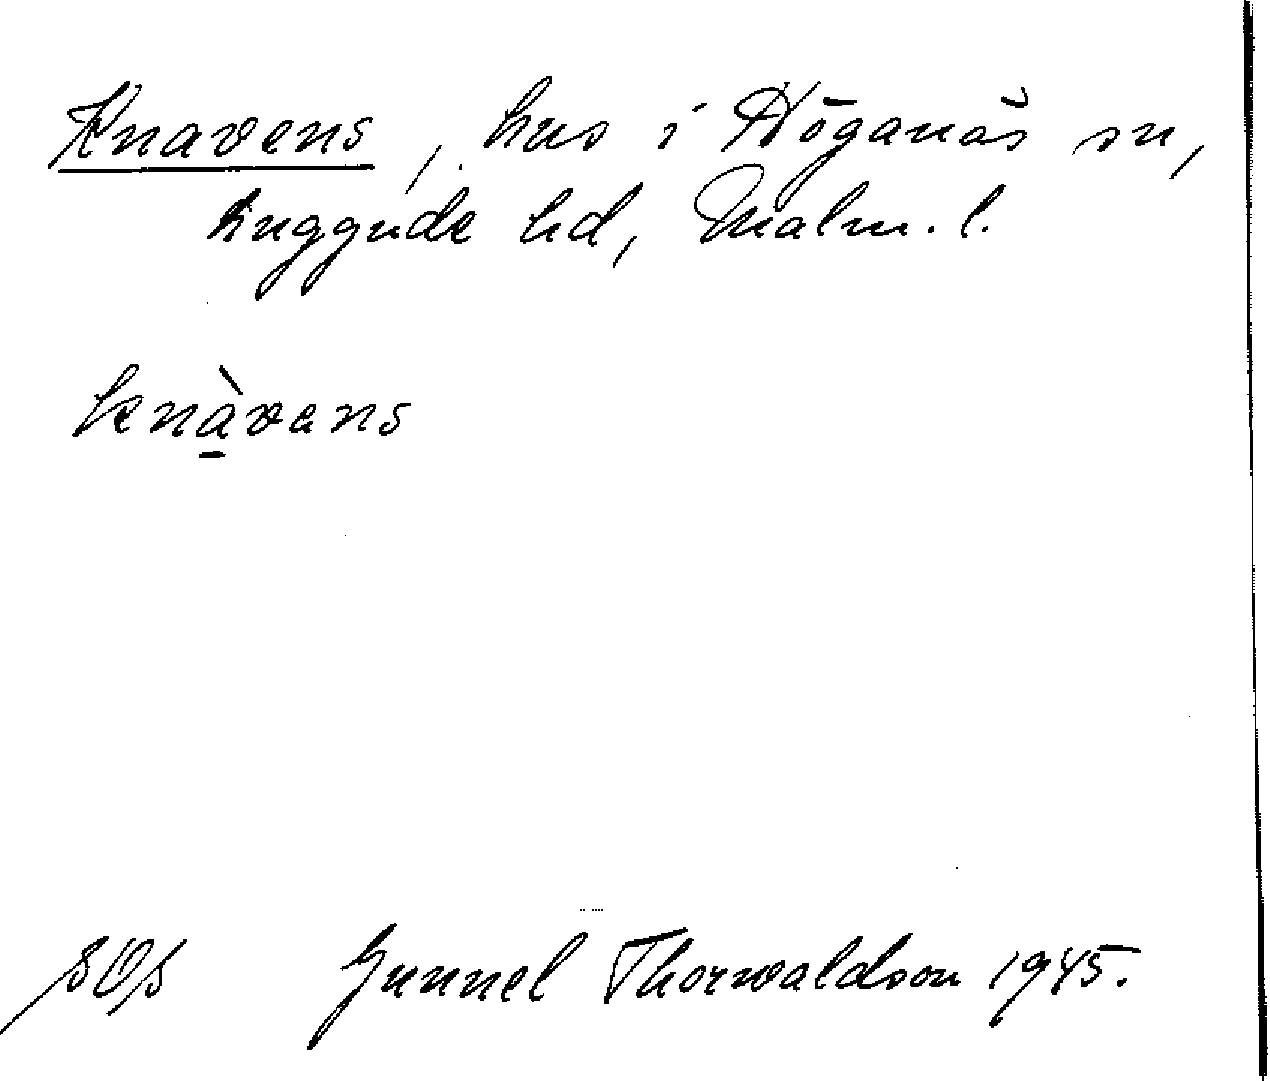 Knavens, hus i Höganäs sn,
Luggude hd, Malm. l.
knàvans
SOS Gunnel Thorwaldson 1945.